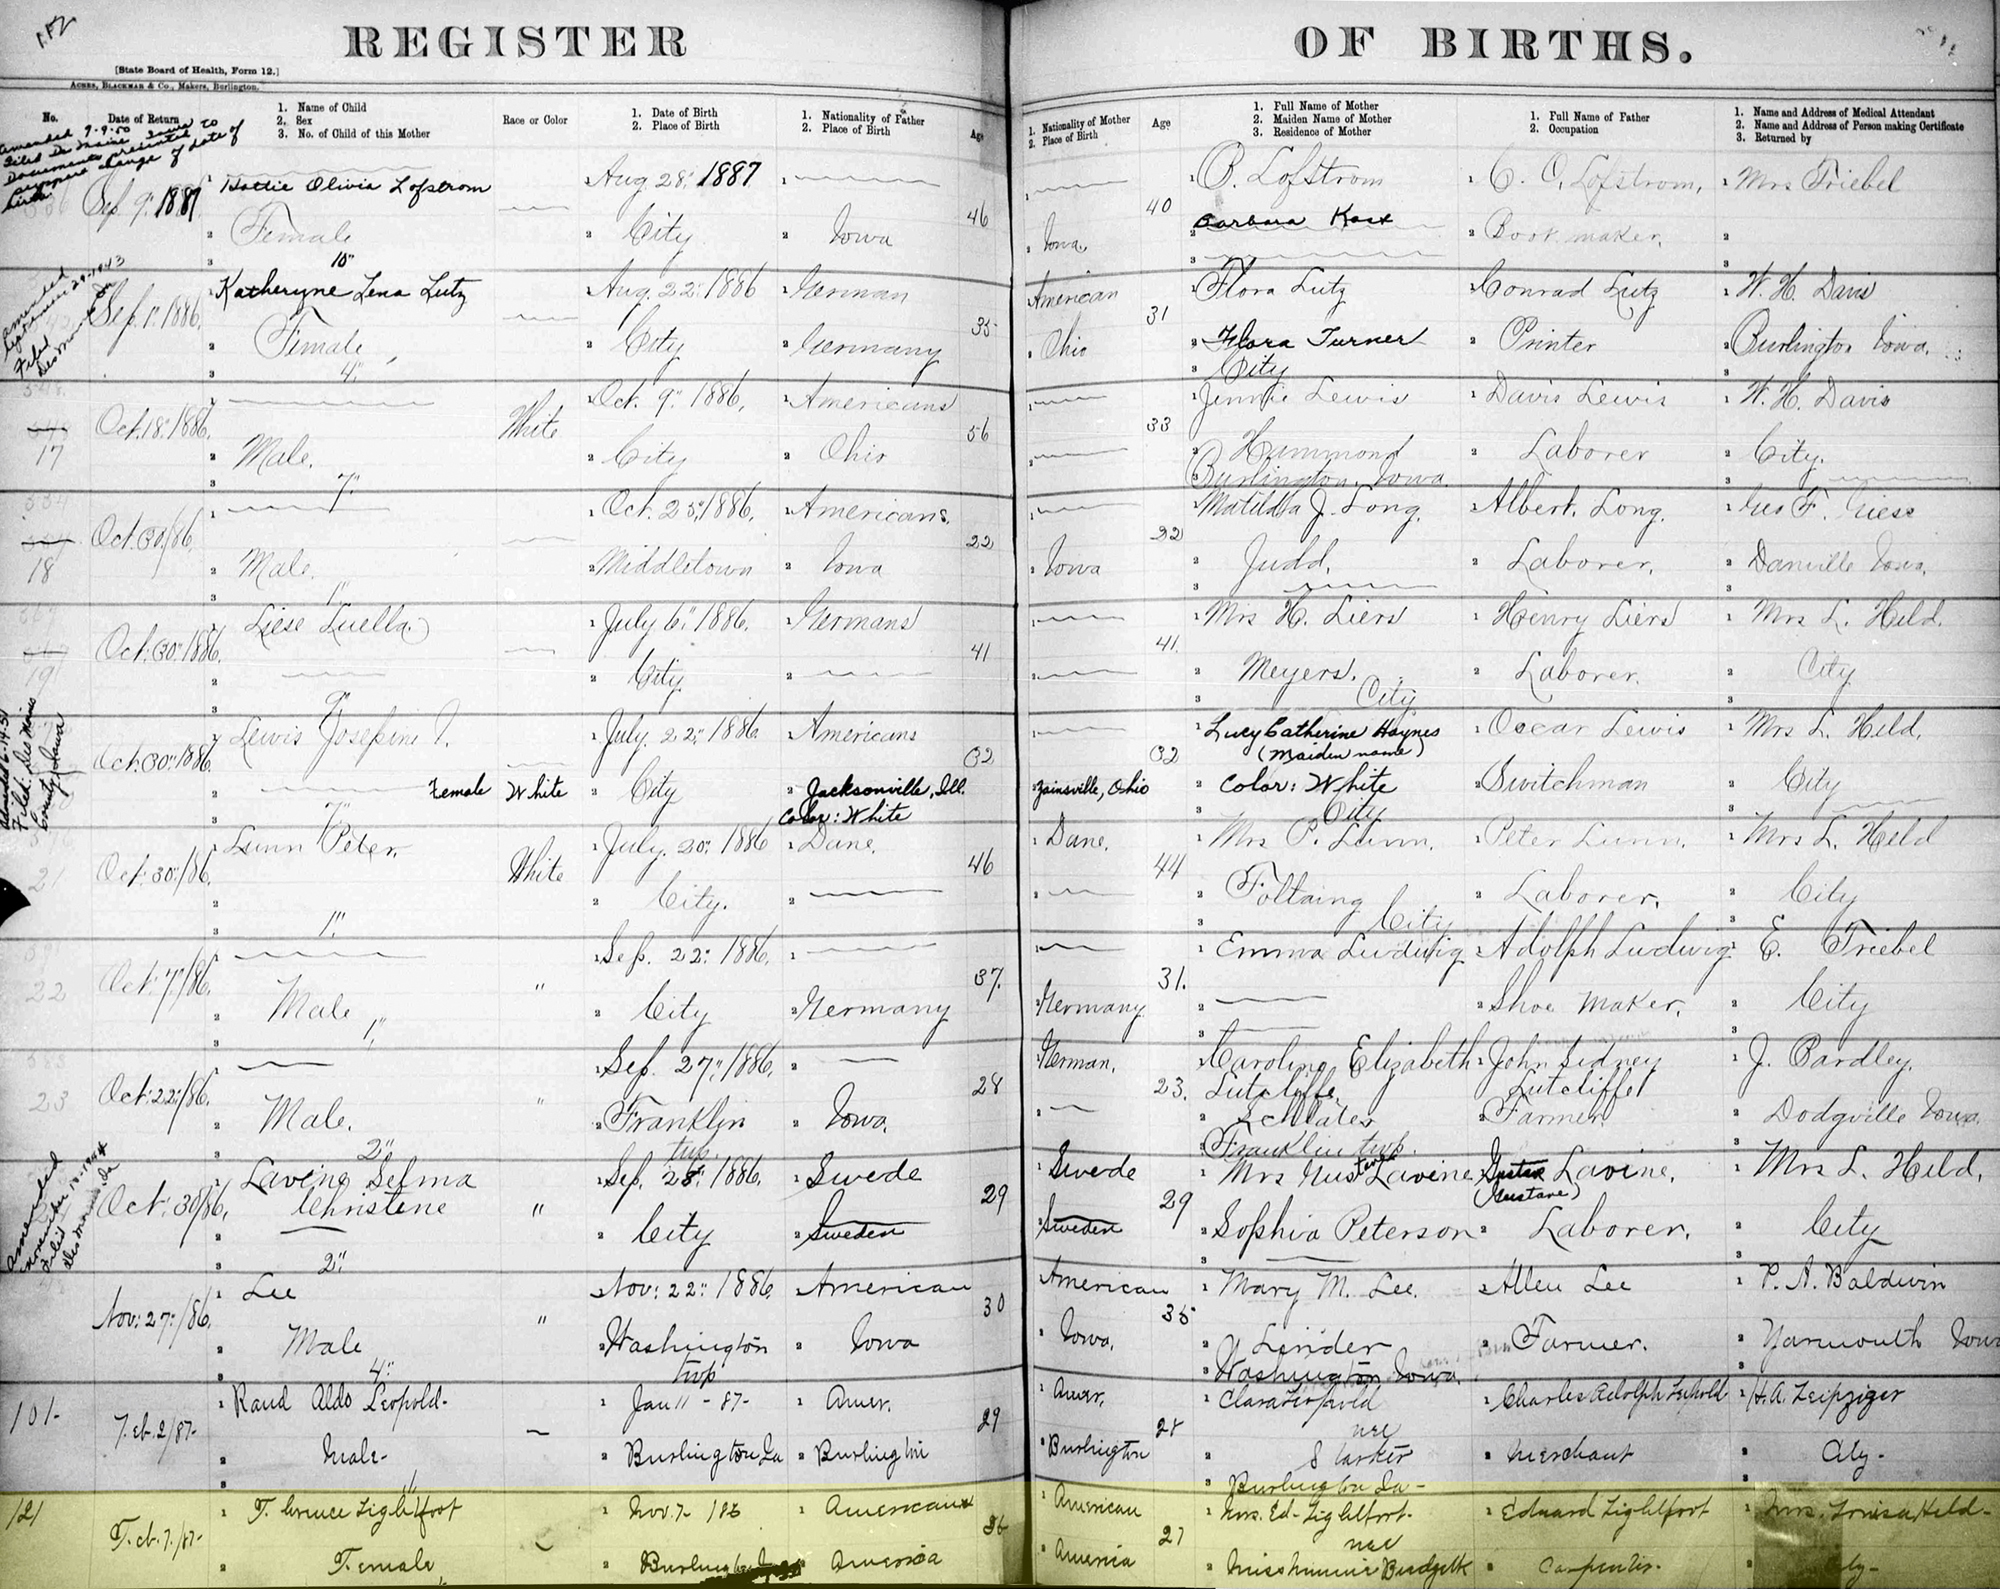 REGISTER OF BIRTHS.
[State Board of Health, Form 12.]
Acres, Blackmar & Co., Makers, Burlington.
No.
Date of Return
1. Name of Child
2. Sex
3. No. of Child of this Mother
Race or Color
1. Date of Birth
2. Place of Birth
1. Nationality of Father
2. Place of Birth
Age
1. Nationality of Mother
2. Place of Birth
Age
1. Full Name of Mother
2. Maiden Name of Mother
3. Residence of Mother
1. Full Name of Father
2. Occupation
1. Name and Address of Medical Attendant
2. Name and Address of Person making Certificate
3. Returned by
amended 9-9-50
Documents presented to
support change of date of
birth.
Sep. 9" 1887 Hattie Olivia Lofstrom Aug 28" 1887 B. Lofstrom C. O. Lofstrom, Mrs Triebel
Female City Iowa 46 Iowa, 40 Barbara
10"
Sep. 1" 1886, Katheryne Lena Lutz Aug. 22" 1886 German American Flora Lutz Conrad Lutz W. H. Davis
Female City Germany 35 Ohio 31 Flora Turner Printer Burlington Iowa.
4" City
Oct. 18" 1886, White Oct. 9" 1886, Americans Jennie Lewis Davis Lewis W. H. Davis
17 Male. City Ohio 56 33 Hammond Laborer City.
7" Burlington, Iowa.
Oct. 30/86, Oct. 25" 1886, Americans, Matilda J. Long. Albert. Long. Geo F. Giese
18 Male. Middletown Iowa 22 Iowa 22 Judd, Laborer, Danville Iowa,
1"
Oct. 30" 1886, Liese Luella. July 6" 1886, Germans Mrs H. Liers Henry Liers Mrs L. Held.
19 City 41 41. Meyers. Laborer. City
9" City
Oct. 30" 1886, Lewis Josepine July. 22" 1886 Americans Lucy Catherine Haynes Oscar Lewis Mrs L. Held,
(Maiden name)
Female White City Jacksonville, Ill. 32 Zainsville, Ohio 32 Color: White Switchman City
7" Color: White City
Oct. 30"/86, Lunn Peter, White July. 20" 1886 Dane, Dane, Mrs P. Lunn. Peter Lunn. Mrs L. Held
21 City. 46 44 Foltaing Laborer, City
1" City
Oct. 7"/86, " Sep. 22" 1886, Emma Ludwig Adolph Ludwig E. Triebel
22 Male City Germany 37. Germany 31. Shoe Maker, City
1"
Oct. 22"/86, " Sep. 27" 1886, German, Caroline Elizabeth John Sidney J. Pardley,
Sutcliffe, Sutcliffe
23 Male. Franklin twp. Iowa, 28 23. Schlater Farmer, Dodgville Iowa,
2" Franklin twp.
Amended
Oct. 30/86, Lavine Selma Sep. 28" 1886, Swede Swede Mrs Gustave Lavine Gustav Lavine, Mrs L. Held,
Christene " (Gustave)
City Sweden 29 Sweden 29 Sophia Peterson Laborer, City
2"
Nov. 27"/86, Lee " Nov. 22" 1886, American American Mary M. Lee. Allen Lee P. A. Baldwin
Male Washington twp Iowa 30 Iowa, 35 Linder Farmer. Yarmouth Iowa
4" Washington Iowa,
101- Feb. 2/87- Rand Aldo Leopold- Jan 11 - 87- Amer. Amer, Clara Leopold Charles Adolph Leopold H. A. Leipziger
Male- Burlington Ia Burlington 29 Burlington 28 nee Starker Merchant City-
Burlington Ia-
121 Feb. 7./87- Lightfoot Nov. 7- 186 American American Mrs. Ed- Lightfoot- Edward Lightfoot Mrs. Louisa Held-
Female, Burlington America 36 America 27 nee Miss Minnie Carpenter- City-